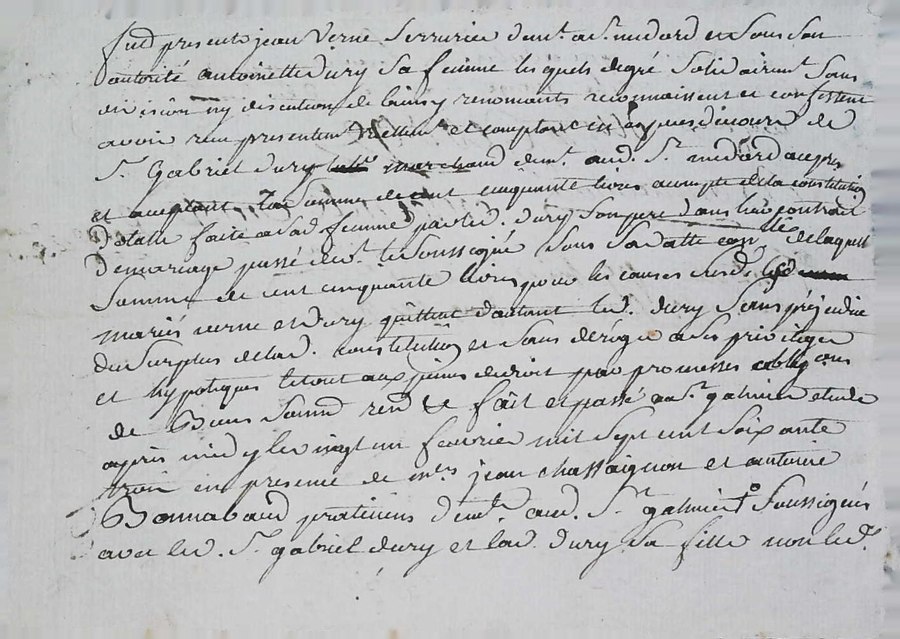 fud presents jean Verne Serrurier demt. a St. medard et sous son
autorité antoinette dury sa femme lesquels degré solidairemt. sans
division ny discution de biens y renonçants reconnaissent et confessent
avoir reçu presentemt. réellemt. et comptant en espèces decours de
Sr. Gabriel dury marchand demt. aud. St. medard acepts
et acceptant la somme de cent cinquante livres acompte de la constitution
dotalle faitte a lad femme par led. dury son pere dans leur contrat
de mariage passé devt. le soussigné sous sa datte de laquelle
somme de cent cinquante livres pour les causes susd. lesd
mariés verne et dury quittent d'autant led. dury sans préjudice
du surplus de lad. constitution et sans déroger a ses privilèges
et hypotèques le tout aux peines de droit par promesses obligons
de biens soumd rend fait et passé a St. galmier etude
après midy le vingt un fevrier mil sept cent soixante
trois en presence de mtrs jean chassaignon et antoine
Bonnabaud praticiens demt. aud. St. galmier soussignés
avec led. Sr. gabriel dury et lad. dury sa fille non led.